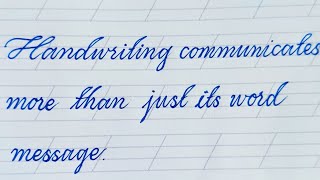 Handwriting communicates
more than just its word
message.